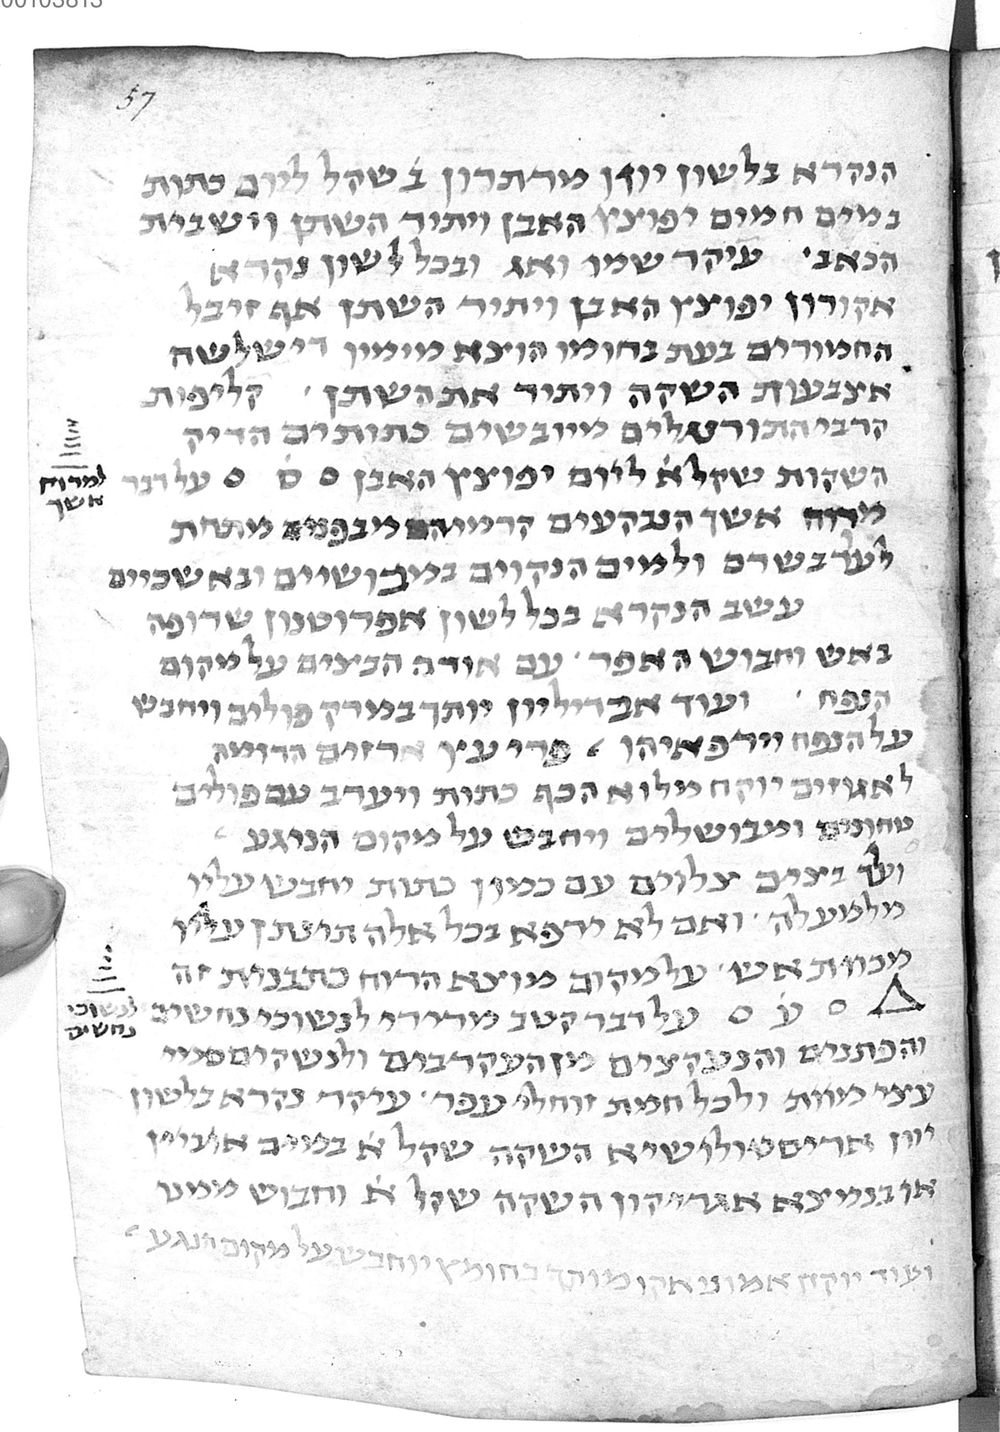 00103813
57
הנקרא בלשון יוון מרתרון ב שקל ליום כתות
במים חמים יפוצץ האבן ויתיר השתן וישבית
הכאב עיקר שמו ואג ובכל לשון נקרא
אקורון יפוצץ האבן ויתיר השתן אף זיבל
החמורים בעת בחומו הוצא מימיו די שלשה
אצבעות השקה ויתיר את השתן קליפות
קרבי התורנגלים מיובשים כתותים הדיק
השקות שקל א ליום יפוצץ האבן ס על דבר
למרוח
אשך
מרוח אשך הנבקעים קרמיהם מבפנים מתחת
לעד בשרם ולמים הנקוים במבושיים ובאשכיים
עשב הנקרא בכל לשון אפרוטנון שרופה
באש וחבוש האפר עם אודם הבצים על מקום
הנפח ועוד אבדיליון יותך במרק פולים ויחבש
על הנפח וירפאיהו פרי עץ ארזים הדומה
לאגוזים יוקח מלוא הכף כתות ויערב עם פולים
טחונים ומבושלים ויחבש על מקום הניגע
ועוד בצים צלוים עם כמון כתות יחבש עליו
מלמעלה ואם לא ירפא בכל אלה תינתן עליו
מכוות אש על מקום מוצא הרוח כתבנית זה
ע על דבר קטב מרירי לנשוכי נחשים
לנשוכי
נחשים
והפתנים והנעקצים מן העקרבים ולנשקים סמי
עצי מוות ולכל חמת זוחלי עפר עיקר נקרא בלשון
יוון אריסטולושיא השקה שקל א במים או ביין
או בנמצא אגריקון השקה שקל א וחבוש ממנו
ועוד יוקח אמוניאקו מותך בחומץ יוחבש על מקום הנגע